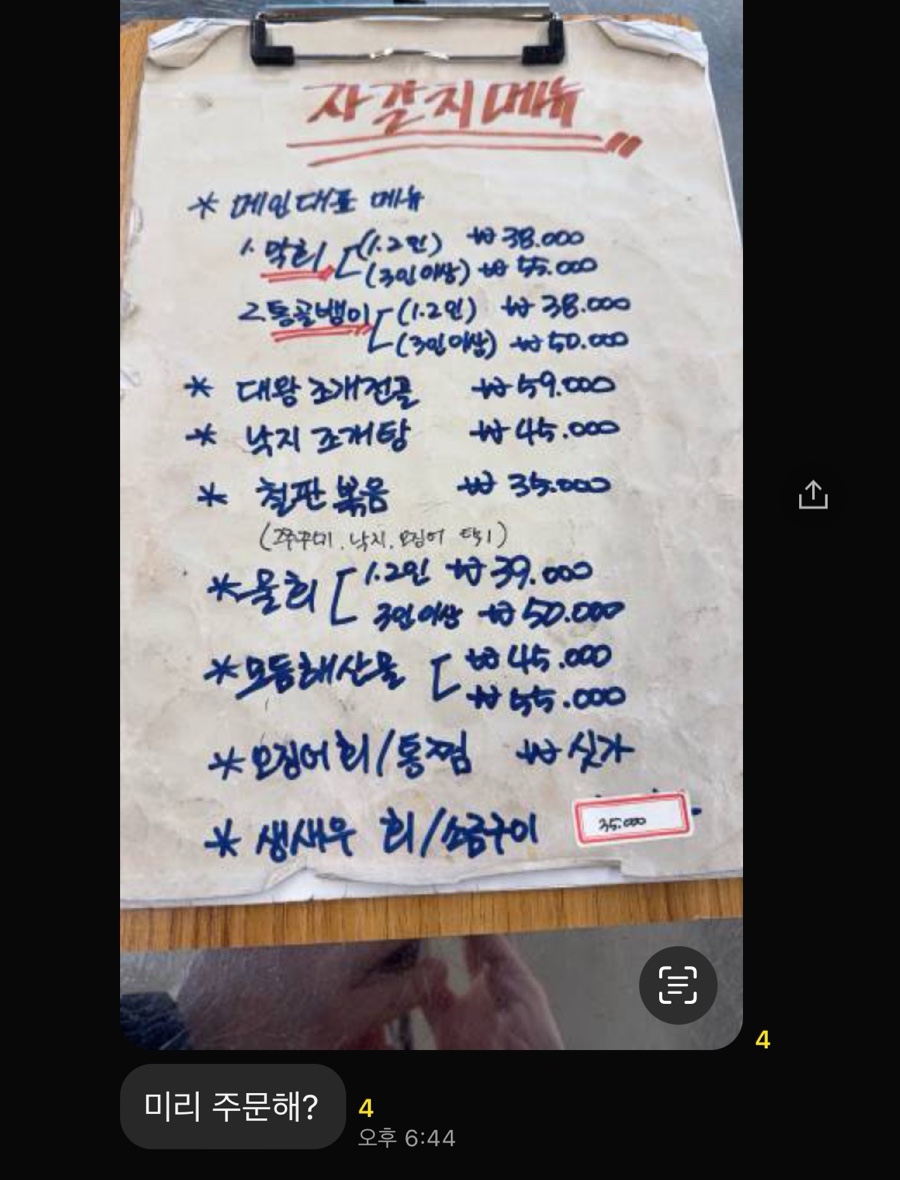 자갈치메뉴
* 메인대표 메뉴
1. 막회 (1.2인) ₩38.000
(3인이상) ₩55.000
2. 통골뱅이 (1.2인) ₩38.000
(3인이상) ₩50.000
* 대왕 조개전골 ₩59.000
* 낙지 조개탕 ₩45.000
* 철판 볶음 ₩35.000
(쭈꾸미.낙지.오징어 택1)
* 물회 1.2인 ₩39.000
3인이상 ₩50.000
* 모듬해산물 ₩45.000
₩55.000
* 오징어회/통찜 ₩싯가
* 생새우 회/소금구이 35.000
4
미리 주문해? 4
오후 6:44